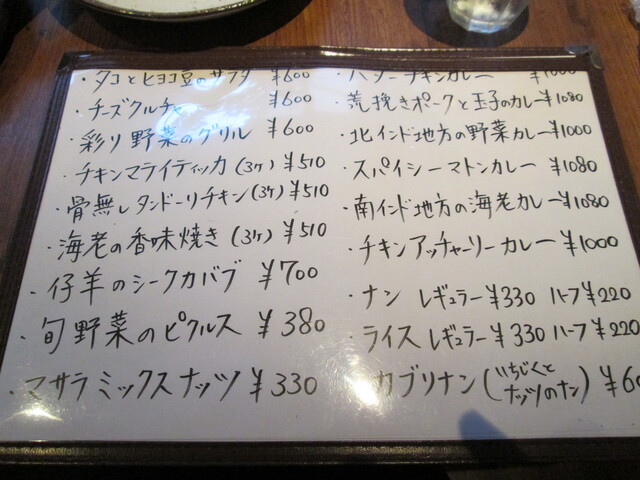 ・タコとヒヨコ豆のサブタ ¥600
・チーズクルチャ ¥600
・彩り野菜のグリル ¥600
・チキンマライティッカ(3ケ) ¥510
・骨無しタンドーリチキン(3ケ) ¥510
・海老の香味焼き(3ケ) ¥510
・仔羊のシークカバブ ¥700
・旬野菜のピクルス ¥380
・マサラミックスナッツ ¥330
チキンカレー ¥1000
・荒挽きポークと玉子のカレー ¥1080
・北インド地方の野菜カレー ¥1000
・スパイシーマトンカレー ¥1080
・南インド地方の海老カレー ¥1080
・チキンアッチャーリーカレー ¥1000
・ナン レギュラー ¥330 ハーフ ¥220
・ライス レギュラー ¥330 ハーフ ¥220
カブリナン(いちじくとナッツのナン) ¥60